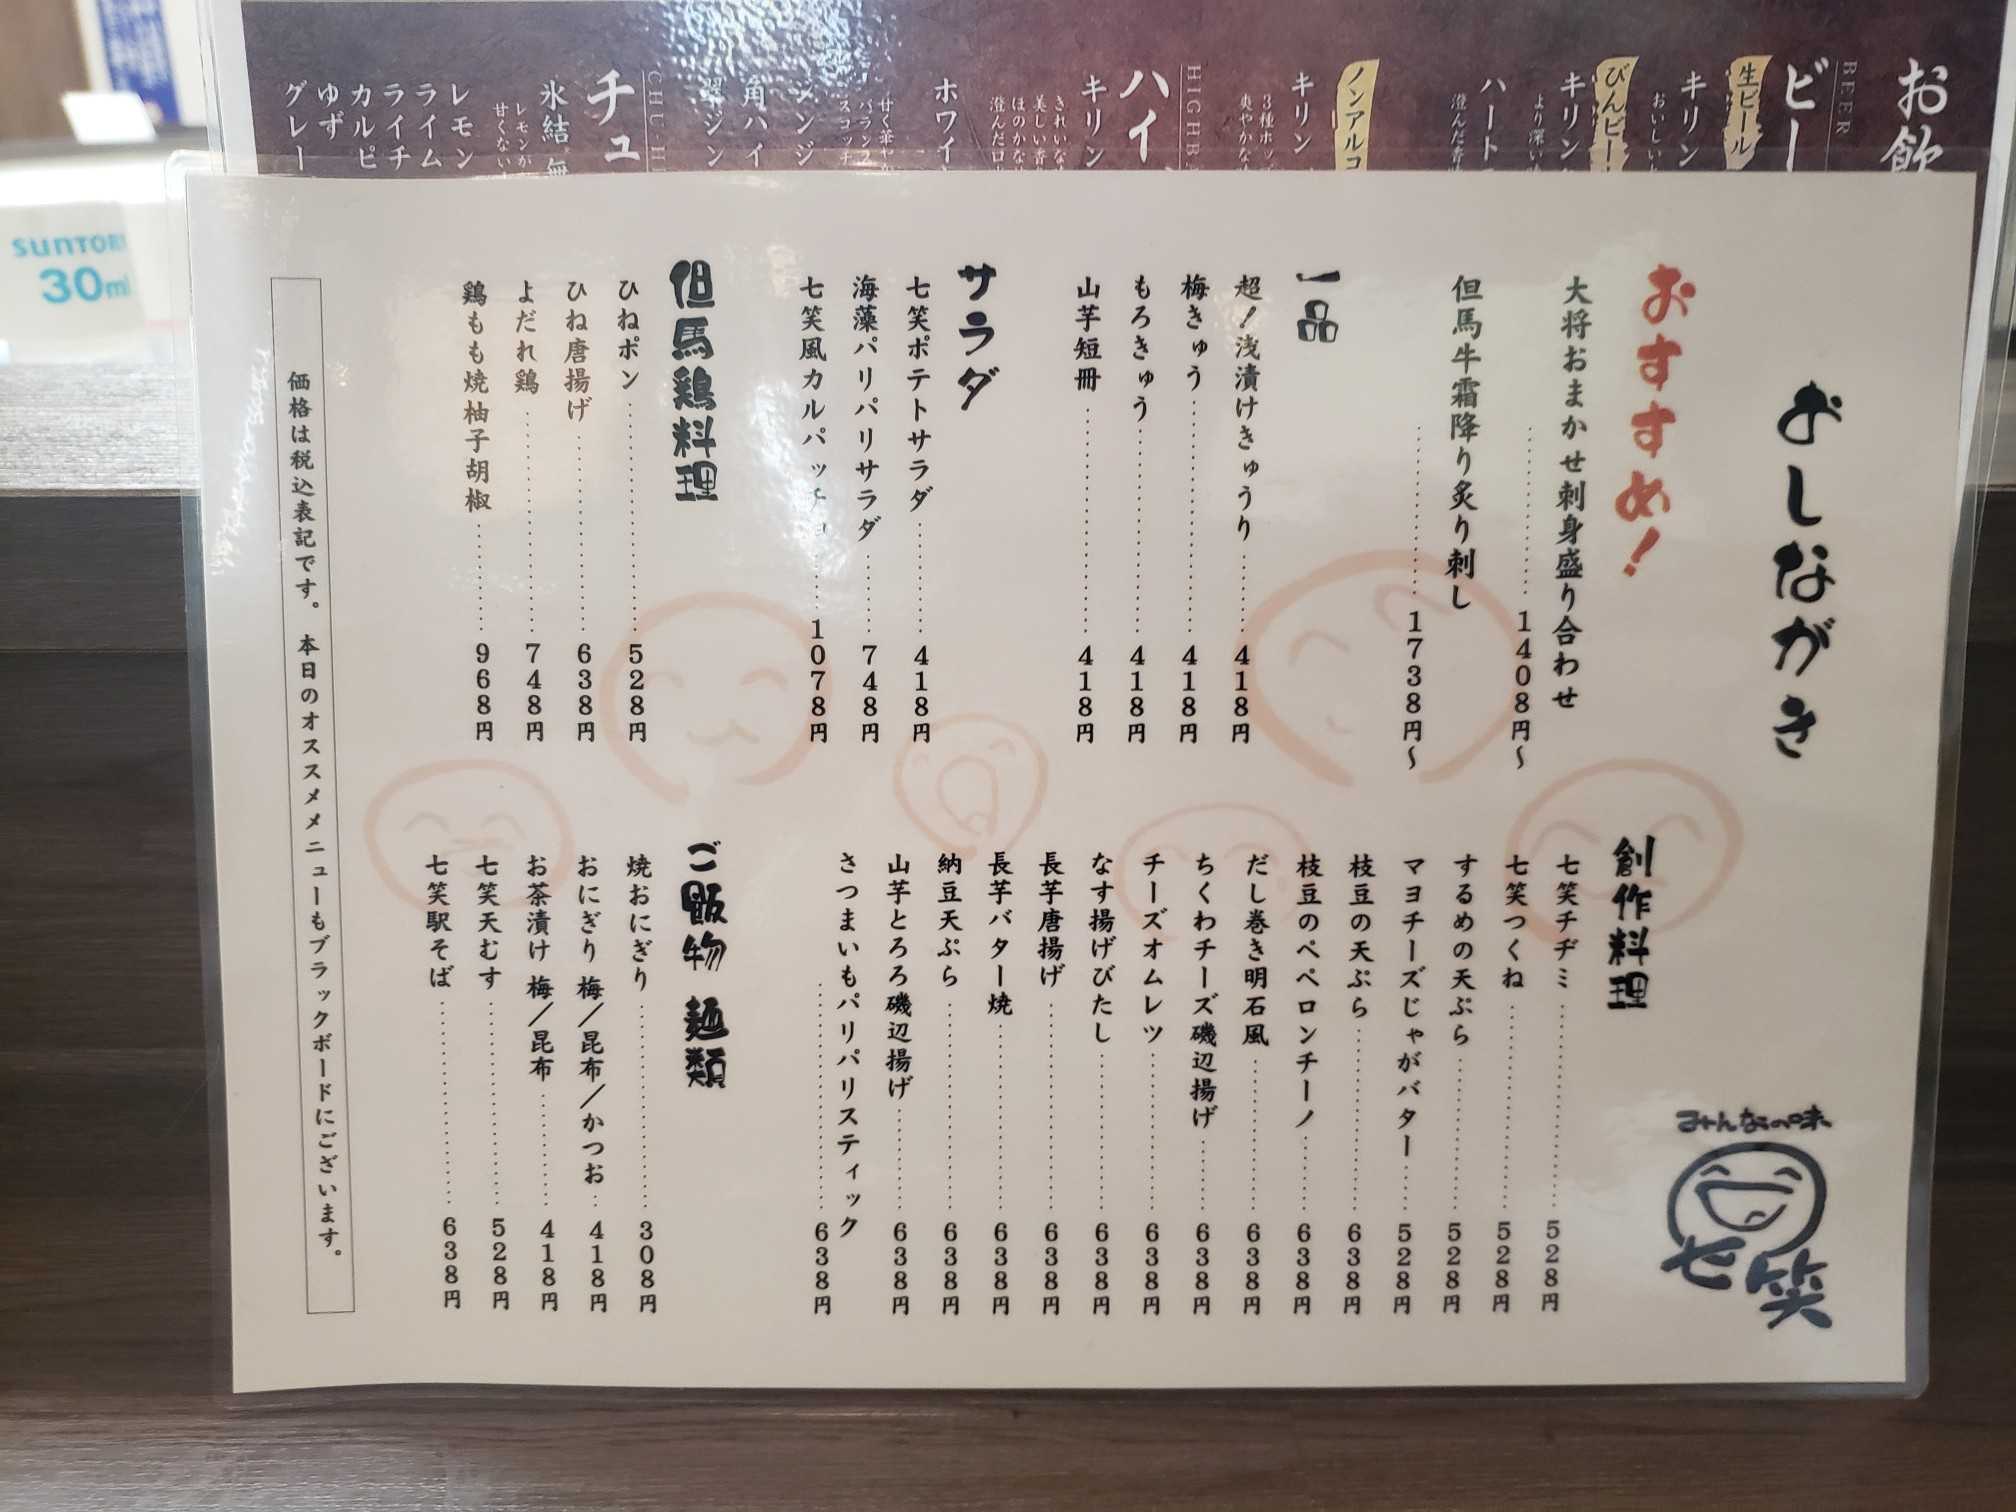 お飲
BEER
ビー
生ビール
キリン
おいしい
びんビー
キリン
より深い
ハート
澄んだ香
ノンアルコ
キリン
3種ホップ
爽やかな
HIGHB
ハイ
キリン
きれいな
美しい香
ほのかな
澄んだ口
ホワイ
甘く華や
バランス
スコッチ
ジンジ
角ハイ
翠ジン
CHU-H
チュ
氷結無
レモンが
甘くない
レモン
ライム
ライチ
カルピ
ゆず
グレー
SUNTORY
30ml
おしながき
おすすめ!
大将おまかせ刺身盛り合わせ
1408円〜
但馬牛霜降り炙り刺し
1738円〜
一品
超!浅漬けきゅうり 418円
梅きゅう 418円
もろきゅう 418円
山芋短冊 418円
サラダ
七笑ポテトサラダ 418円
海藻パリパリサラダ 748円
七笑風カルパッチョ 1078円
但馬鶏料理
ひねポン 528円
ひね唐揚げ 638円
よだれ鶏 748円
鶏もも焼柚子胡椒 968円
創作料理
七笑チヂミ 528円
七笑つくね 528円
するめの天ぷら 528円
マヨチーズじゃがバター 528円
枝豆の天ぷら 638円
枝豆のペペロンチーノ 638円
だし巻き明石風 638円
ちくわチーズ磯辺揚げ 638円
チーズオムレツ 638円
なす揚げびたし 638円
長芋唐揚げ 638円
長芋バター焼 638円
納豆天ぷら 638円
山芋とろろ磯辺揚げ 638円
さつまいもパリパリスティック
638円
ご飯物 麺類
焼おにぎり 308円
おにぎり 梅/昆布/かつお 418円
お茶漬け 梅/昆布 418円
七笑天むす 528円
七笑駅そば 638円
みんなの味
七笑
価格は税込表記です。本日のオススメメニューもブラックボードにございます。